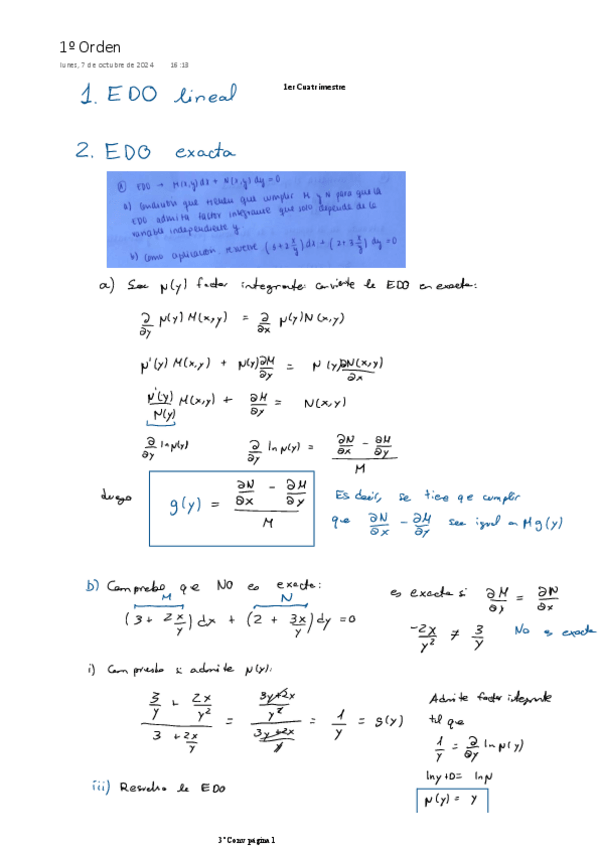 1º Orden
lunes, 7 de octubre de 2024 16:13
1er Cuatrimestre
1. EDO lineal
2. EDO exacta
EDO → M(x,y)dx + N(x,y)dy = 0
a) Condición que tienen que cumplir M y N para que la
EDO admita factor integrante que solo dependa de la
variable independiente y
b) Como aplicación, resolver (3+2x/y)dx + (2+3x/y)dy = 0
a) Sea μ(y) factor integrante: convierte la EDO en exacta:
∂/∂y μ(y)M(x,y) = ∂/∂x μ(y)N(x,y)
μ'(y)M(x,y) + μ(y)∂M/∂y = μ(y)∂N(x,y)/∂x
μ'(y)/μ(y) M(x,y) + ∂M/∂y = N(x,y)
∂/∂y ln μ(y) ∂/∂y ln μ(y) = (∂N/∂x - ∂M/∂y)/M
luego g(y) = (∂N/∂x - ∂M/∂y)/M
Es decir, se tiene que cumplir
que ∂N/∂x - ∂M/∂y sea igual a M g(y)
b) Comprebo que NO es exacta:
M N
(3+ 2x/y)dx + (2 + 3x/y)dy = 0
es exacta si ∂M/∂y = ∂N/∂x
-2x/y² ≠ 3/y No es exacta
i) Compruebo si admite μ(y):
(3/y + 2x/y²)/(3 + 2x/y) = ((3y+2x)/y²)/((3y+2x)/y) = 1/y = g(y)
Admite factor integrante
tal que
1/y = ∂/∂y ln μ(y)
ln y + D = ln μ
μ(y) = y
iii) Resuelvo la EDO
3ªConv página 1